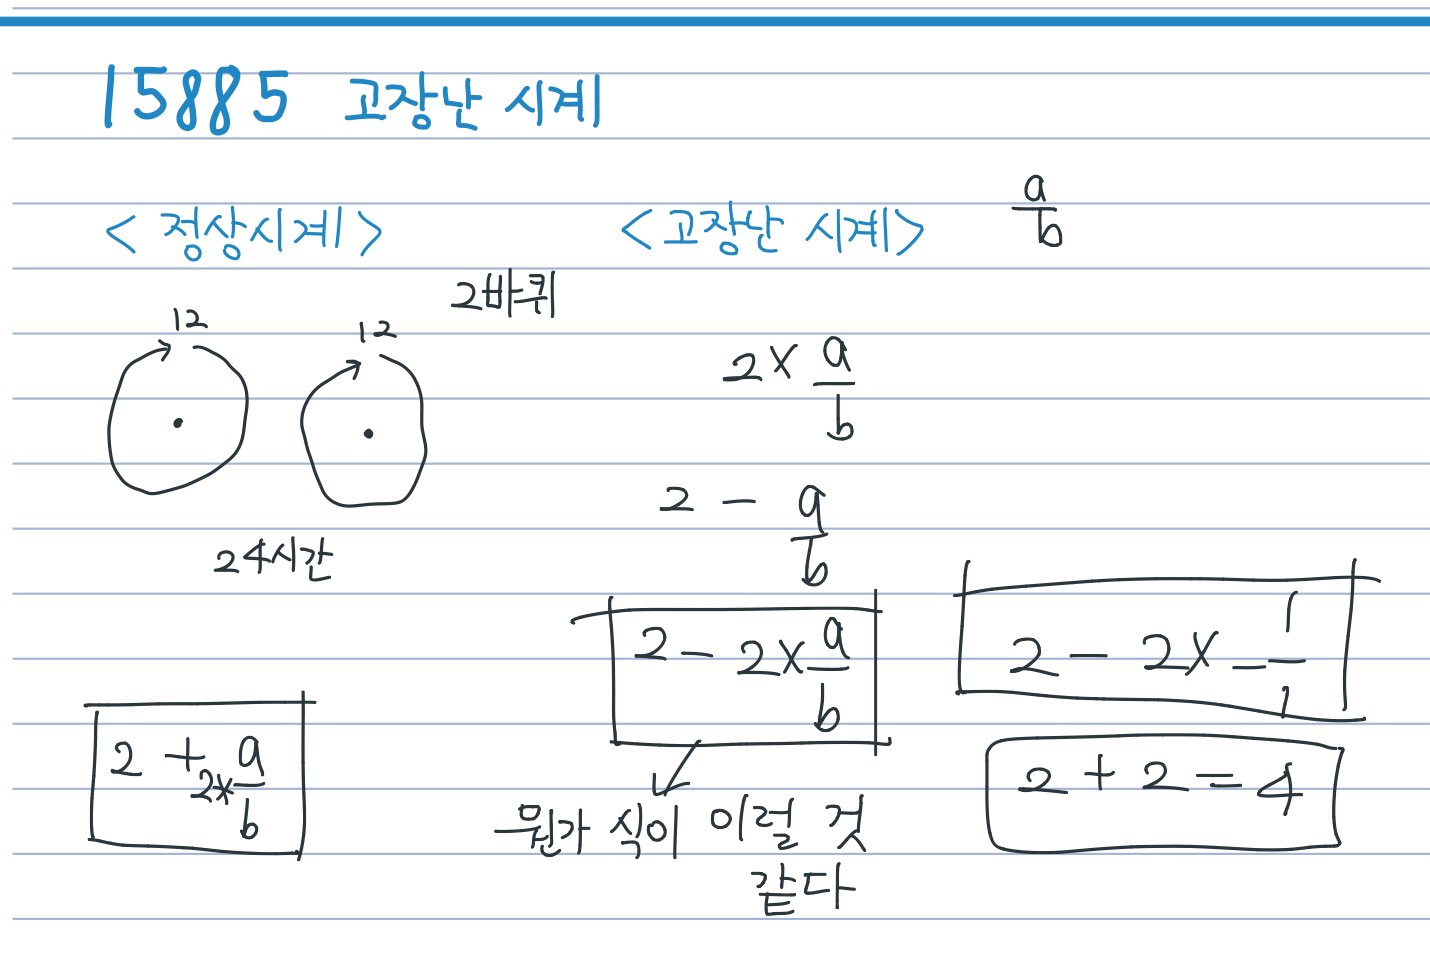 15885 고장난 시계
< 정상시계 >
< 고장난 시계 >
a/b
2바퀴
12
12
2 x a/b
24시간
2 - a/b
2 - 2 x a/b
2 - 2 x - 1/1
2 + 2 x a/b
2 + 2 = 4
뭔가 식이 이럴 것
같다